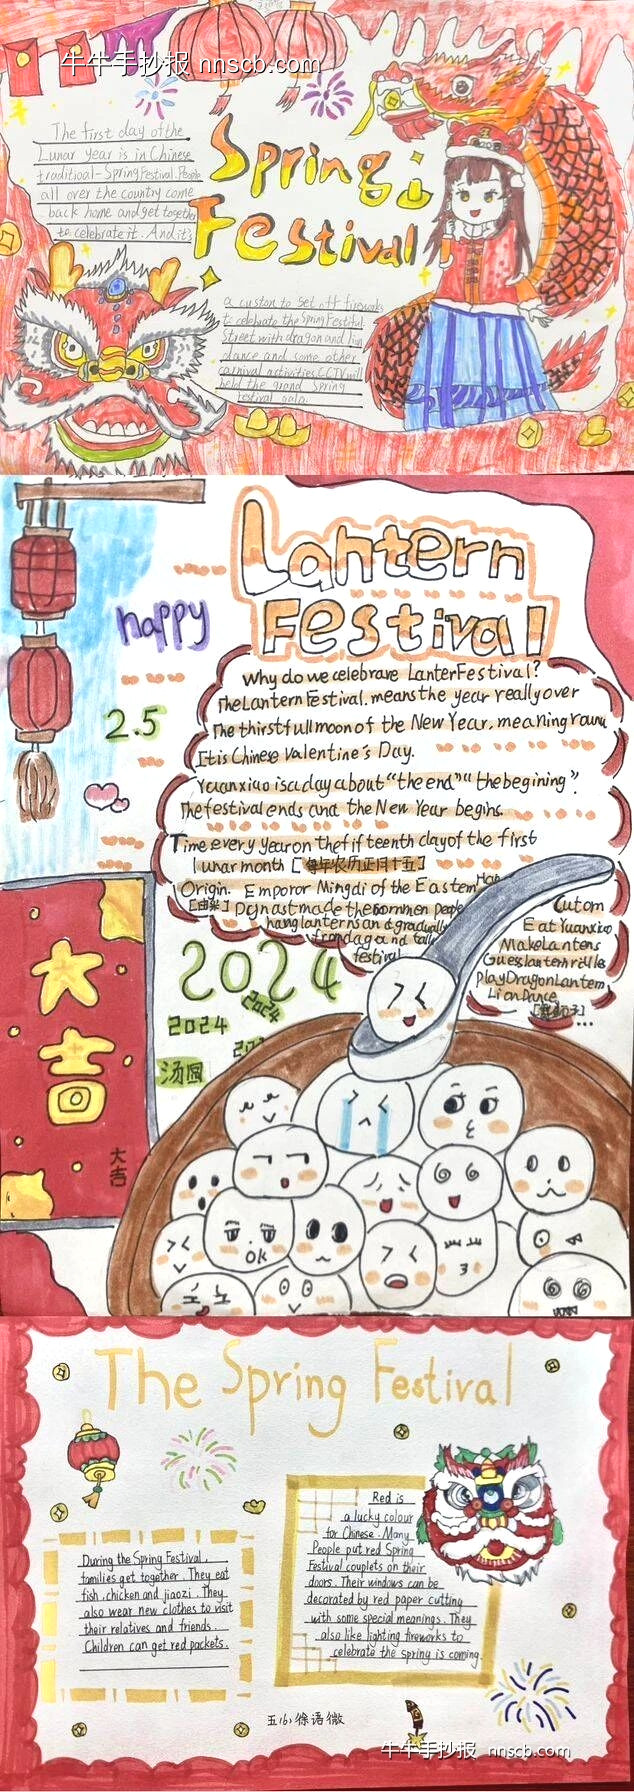 牛牛手抄报 nnscb.com
The first day of the
Lunar year is in Chinese
traditioal-Spring Festival. People
all over the country come
back home and get together
to celebrate it. And it's
Spring
Festival
a custon to set off fireworks
to celebrate the Spring Festival
Street with dragon and lion
dance and some other
carnival activities. CCTV will
held the grand Spring
festival gala.
Lantern
Festival
happy
2.5
Why do we celebrave LanterFestival?
The Lantern Festival. means the year really over
The thirst full moon of the New Year. meaning round
It is Chinese Valentine's Day.
Yuanxiao is a day about "the end" "the begining".
The festival ends and the New Year begins.
Time every year on the fifteenth day of the first
lunar month [每年农历正月十五]
Origin. Emporor Mingdi of the Eastern Han
Dynast made the common people
hang lanterns and gradually
festival
Cutom
Eat Yuanxiao
Make Lantens
Guess lantern riddles
play Dragon Lantern
Lion Dance
2024
2024
2024
汤圆
大吉
大吉
OK
The Spring Festival
During the Spring Festival,
families get together. They eat
fish, chicken and jiaozi. They
also wear new clothes to visit
their relatives and friends.
Children can get red packets.
Red is
a lucky colour
for Chinese. Many
People put red Spring
Festival couplets on their
doors. Their windows can be
decorated by red paper cutting
with some special meanings. They
also like lighting fireworks to
celebrate the spring is coming.
五(6) 徐语微
牛牛手抄报 nnscb.com